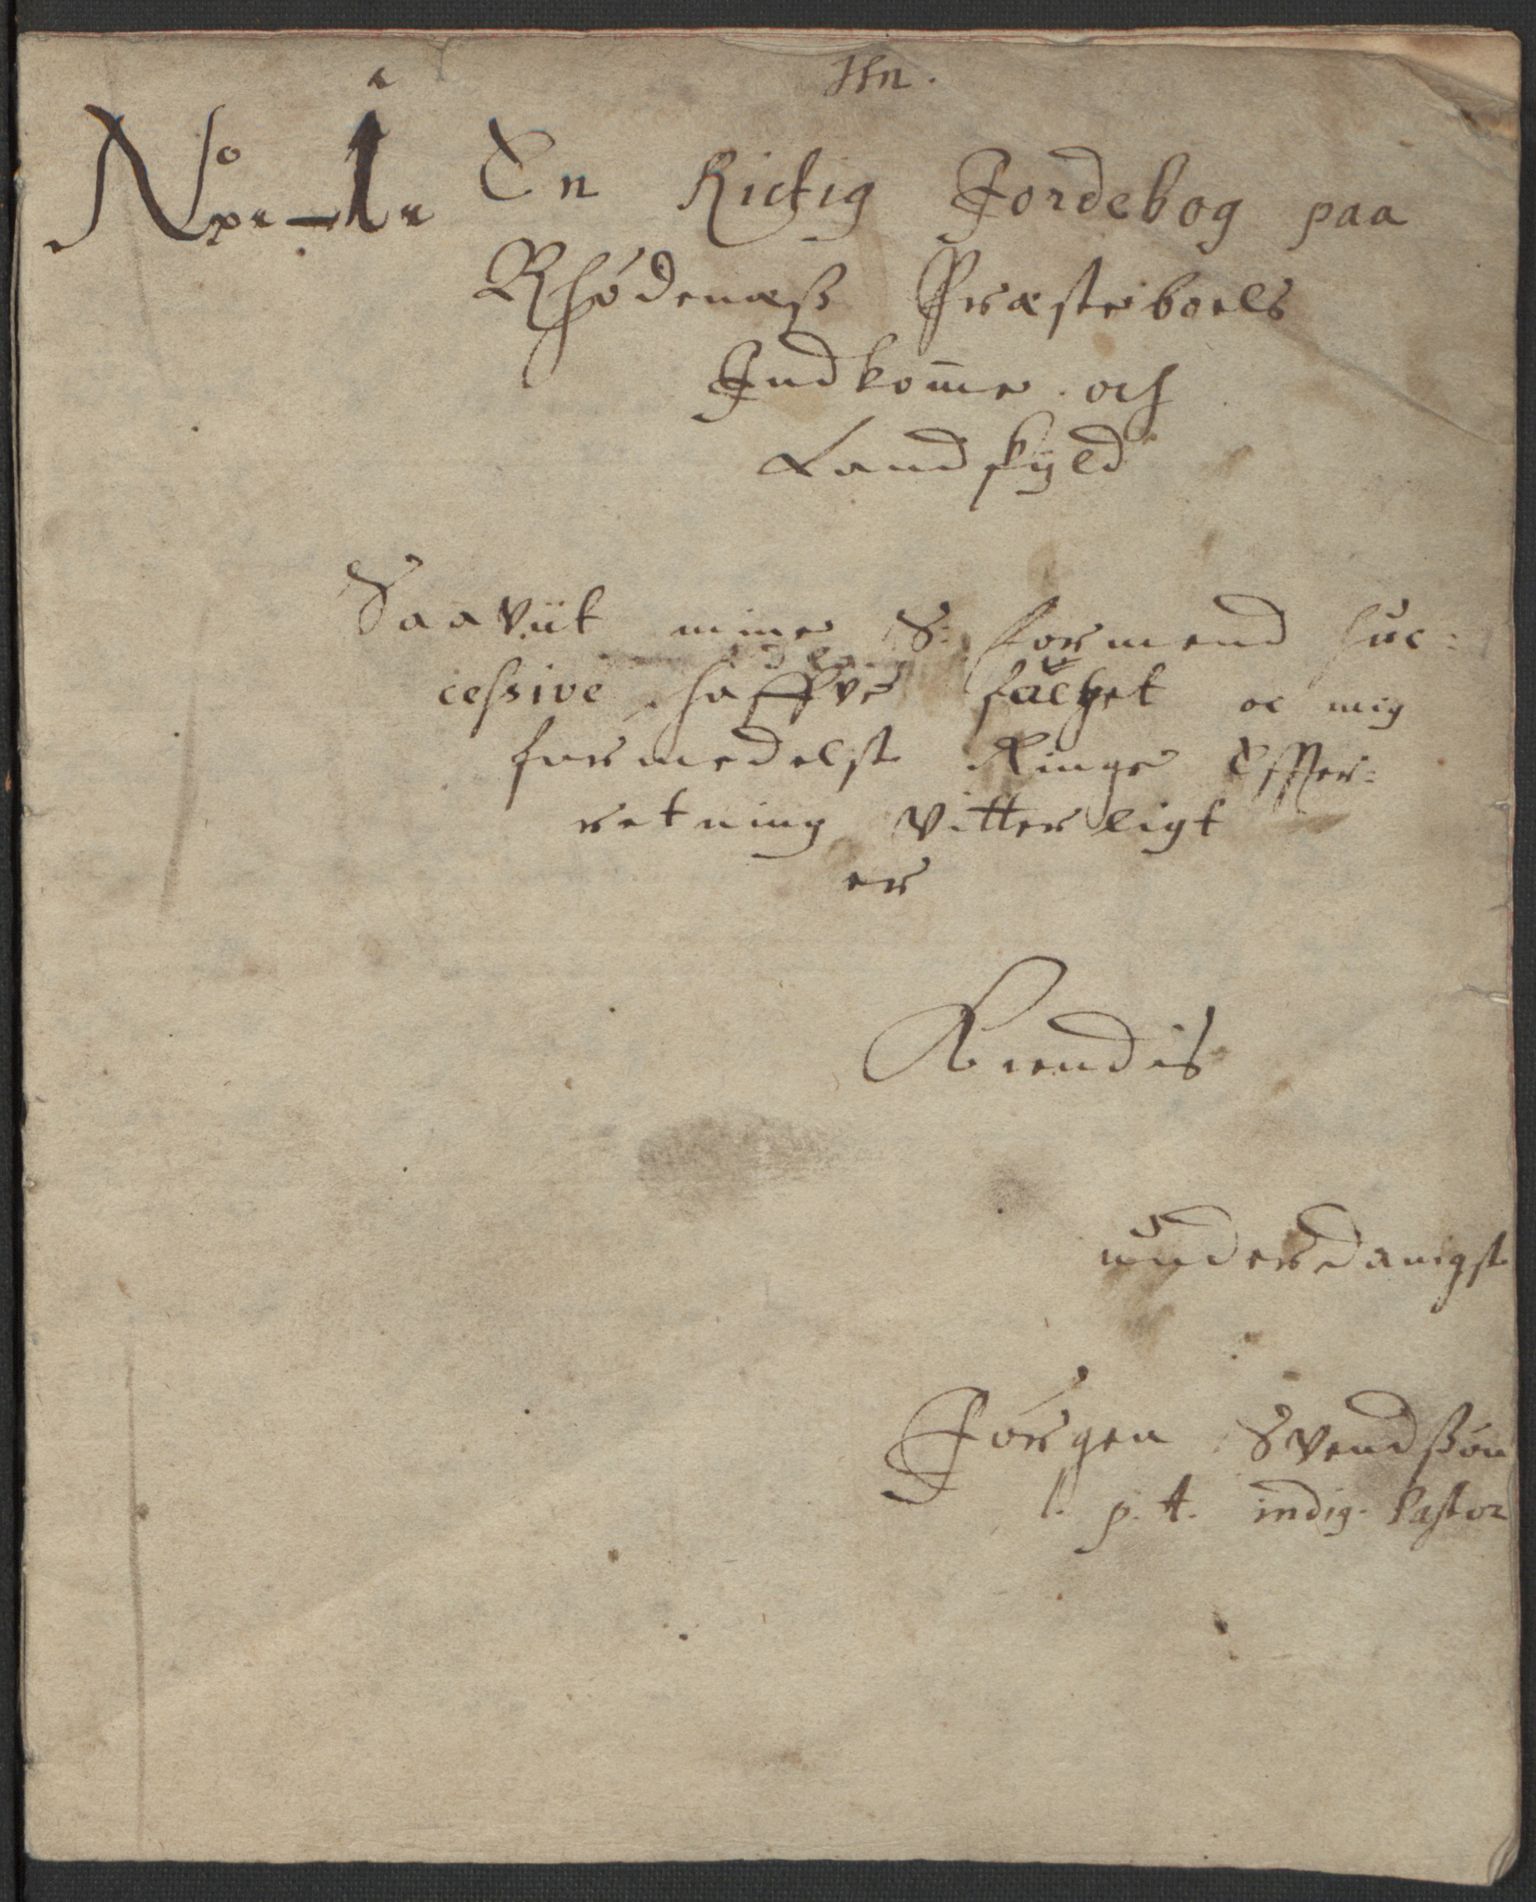 No 1
En Rictig Jordebog paa
Rhødenæß Præsteboels
Indkom̄e och
Landskyld
Saaviit mine S: formend suc:
cessive haffve et oc mig
formedelst Ringe Effter:
retning vitterligt
er
Kiendis
underdanigst
Jørgen Svendßøn
p. t. indig. Pastor